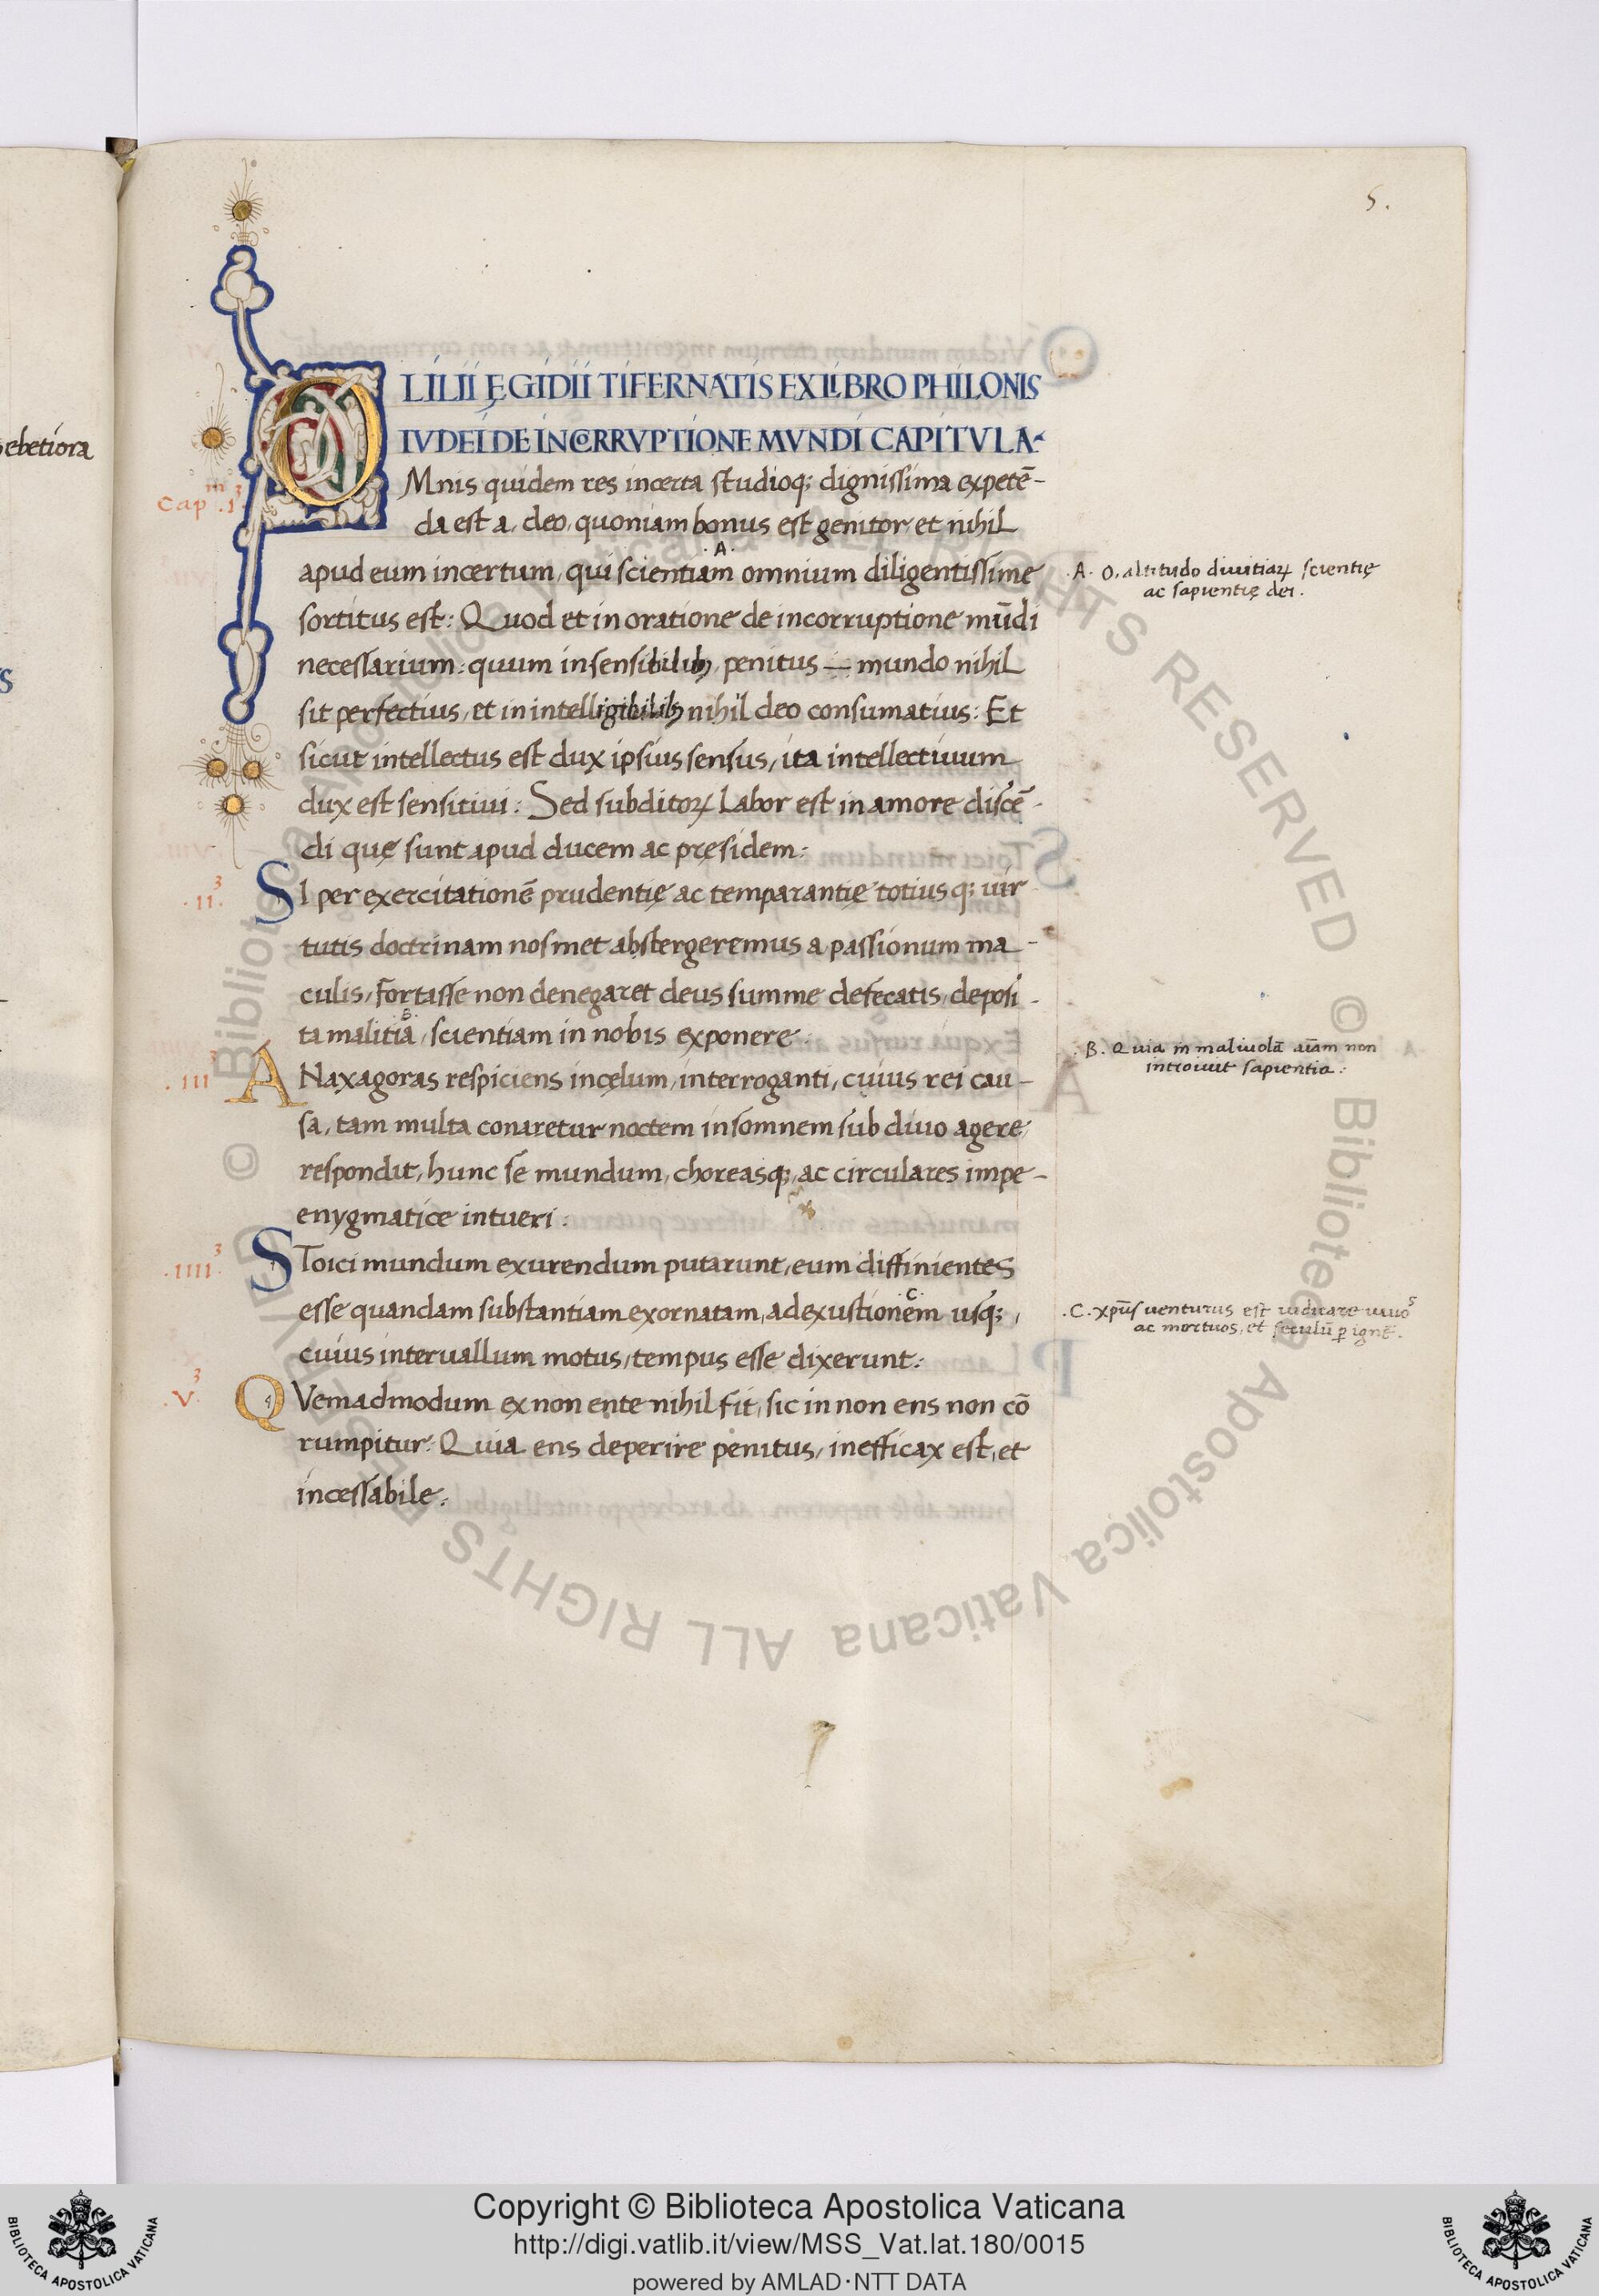 5.
ebetiora
S
LILII ĘGIDII TIFERNATIS EX LIBRO PHILONIS
IVDEI DE INCORRVPTIONE MVNDI CAPITVLA
Cap.m .1.3
OMnis quidem res incerta studioq; dignissima expetē-
da est a deo, quoniam bonus est genitor et nihil
.A.
apud eum incertum, qui scientiam omnium diligentissime
sortitus est: Quod et in oratione de incorruptione mūdi
necessarium: quum in sensibilibꝫ penitus — mundo nihil
sit perfectius, et in intelligibilibꝫ nihil deo consumatius: Et
sicut intellectus est dux ipsius sensus, ita intellectiuum
dux est sensitiui: Sed subditoꝝ labor est in amore discē-
di quę sunt apud ducem ac pręsidem:
.A. O. altitudo diuitiaꝝ scientię
ac sapientię dei.
.II.3
SI per exercitationē prudentię ac temparantię totiusq; uir
tutis doctrinam nosmet abstergeremus a passionum ma-
culis, fortasse non denegaret deus summe defecatis, deposi-
B.
ta malitia, scientiam in nobis exponere.
.B. Quia in maliuolā aīam non
introiuit sapientia:
.III.3
ANaxagoras respiciens in cęlum, interroganti, cuius rei cau-
sa, tam multa conaretur noctem insomnem sub diuo agere,
respondit, hunc se mundum, choreasq;, ac circulares impe-
enygmatice intueri:
.IIII.3
SToici mundum exurendum putarunt, eum diffinientes
.C.
esse quandam substantiam exornatam, ad exustionem usq;,
cuius interuallum motus, tempus esse dixerunt:
.C. xp̄us uenturus est iudicare uiuos
ac mortuos, et seculū ꝑ ignē.
.V.3
QVemadmodum ex non ente nihil fit, sic in non ens non cō
rumpitur: Quia ens deperire penitus, inefficax est, et
incessabile:
© Biblioteca Apostolica Vaticana ALL RIGHTS RESERVED
© Biblioteca Apostolica Vaticana ALL RIGHTS RESERVED
Copyright © Biblioteca Apostolica Vaticana
http://digi.vatlib.it/view/MSS_Vat.lat.180/0015
powered by AMLAD·NTT DATA
BIBLIOTECA APOSTOLICA VATICANA
BIBLIOTECA APOSTOLICA VATICANA